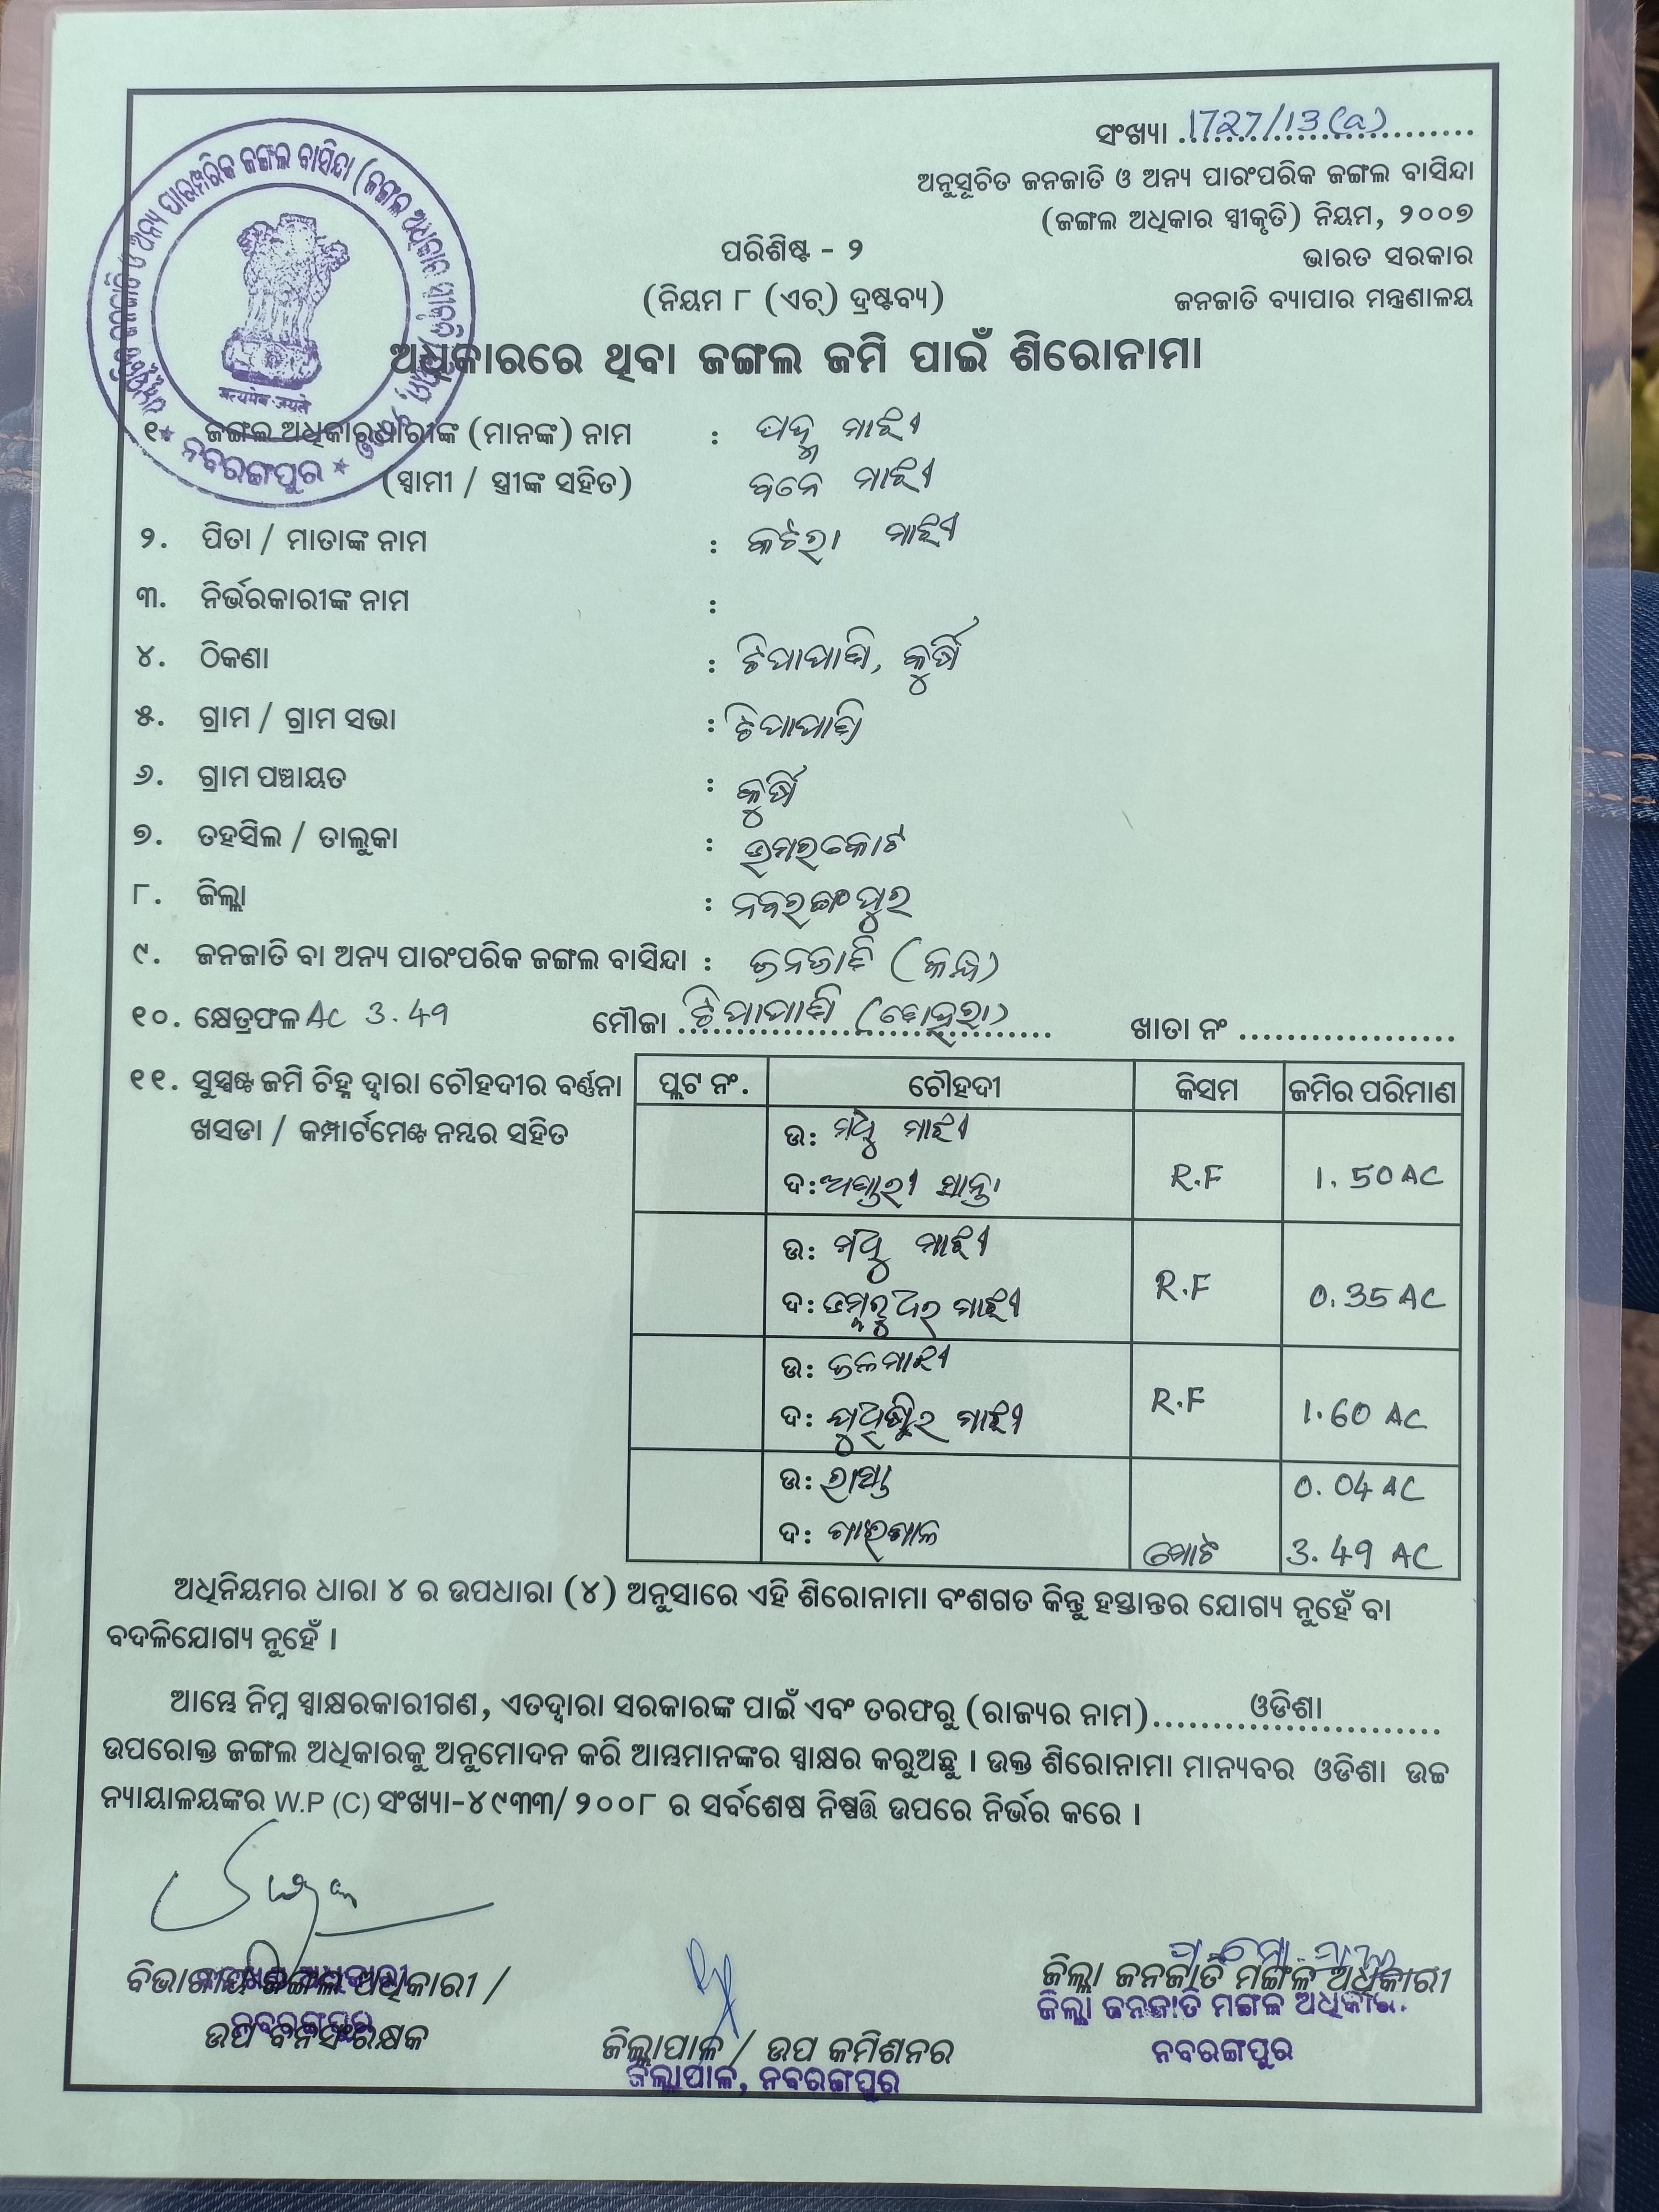 ସଂଖ୍ୟା 1727/13(a)
ଅନୁସୂଚିତ ଜନଜାତି ଓ ଅନ୍ୟ ପାରଂପରିକ ଜଙ୍ଗଲ ବାସିନ୍ଦା
(ଜଙ୍ଗଲ ଅଧିକାର ସ୍ୱୀକୃତି) ନିୟମ, ୨୦୦୭
ଭାରତ ସରକାର
ଜନଜାତି ବ୍ୟାପାର ମନ୍ତ୍ରଣାଳୟ
ପରିଶିଷ୍ଟ - ୨
(ନିୟମ ୮ (ଏଚ୍) ଦ୍ରଷ୍ଟବ୍ୟ)
ଅଧିକାରରେ ଥିବା ଜଙ୍ଗଲ ଜମି ପାଇଁ ଶିରୋନାମା
सत्यमेव जयते
ନବରଙ୍ଗପୁର
୧. ଜଙ୍ଗଲ ଅଧିକାରଧାରୀଙ୍କ (ମାନଙ୍କ) ନାମ : ମାଝୀ
(ସ୍ୱାମୀ / ସ୍ତ୍ରୀଙ୍କ ସହିତ) ମାଝୀ
୨. ପିତା / ମାତାଙ୍କ ନାମ : ମାଝୀ
୩. ନିର୍ଭରକାରୀଙ୍କ ନାମ :
୪. ଠିକଣା :
୫. ଗ୍ରାମ / ଗ୍ରାମ ସଭା :
୬. ଗ୍ରାମ ପଞ୍ଚାୟତ :
୭. ତହସିଲ / ତାଲୁକା : ଉମରକୋଟ
୮. ଜିଲ୍ଲା : ନବରଙ୍ଗପୁର
୯. ଜନଜାତି ବା ଅନ୍ୟ ପାରଂପରିକ ଜଙ୍ଗଲ ବାସିନ୍ଦା : ଜନଜାତି
୧୦. କ୍ଷେତ୍ରଫଳ Ac 3.49 ମୌଜା ଖାତା ନଂ
୧୧. ସୁସ୍ପଷ୍ଟ ଜମି ଚିହ୍ନ ଦ୍ୱାରା ଚୌହଦୀର ବର୍ଣ୍ଣନା
ଖସଡା / କମ୍ପାର୍ଟମେଣ୍ଟ ନମ୍ବର ସହିତ
ପ୍ଲଟ ନଂ. ଚୌହଦୀ କିସମ ଜମିର ପରିମାଣ
ଉ: ମଧୁ ମାଝୀ
ଦ: R.F 1.50 AC
ଉ: ମଧୁ ମାଝୀ
ଦ: ମାଝୀ R.F 0.35 AC
ଉ:
ଦ: ଯୁଧିଷ୍ଠିର ମାଝୀ R.F 1.60 AC
ଉ: ରାସ୍ତା 0.04 AC
ଦ: ମୋଟ 3.49 AC
ଅଧିନିୟମର ଧାରା ୪ ର ଉପଧାରା (୪) ଅନୁସାରେ ଏହି ଶିରୋନାମା ବଂଶଗତ କିନ୍ତୁ ହସ୍ତାନ୍ତର ଯୋଗ୍ୟ ନୁହେଁ ବା
ବଦଳିଯୋଗ୍ୟ ନୁହେଁ ।
ଆମ୍ଭେ ନିମ୍ନ ସ୍ୱାକ୍ଷରକାରୀଗଣ, ଏତଦ୍ୱାରା ସରକାରଙ୍କ ପାଇଁ ଏବଂ ତରଫରୁ (ରାଜ୍ୟର ନାମ) ଓଡିଶା
ଉପରୋକ୍ତ ଜଙ୍ଗଲ ଅଧିକାରକୁ ଅନୁମୋଦନ କରି ଆମ୍ଭମାନଙ୍କର ସ୍ୱାକ୍ଷର କରୁଅଛୁ । ଉକ୍ତ ଶିରୋନାମା ମାନ୍ୟବର ଓଡିଶା ଉଚ୍ଚ
ନ୍ୟାୟାଳୟଙ୍କର W.P (C) ସଂଖ୍ୟା-୪୯୩୩/ ୨୦୦୮ ର ସର୍ବଶେଷ ନିଷ୍ପତ୍ତି ଉପରେ ନିର୍ଭର କରେ ।
ବିଭାଗୀୟ ଜଙ୍ଗଲ ଅଧିକାରୀ /
ନବରଙ୍ଗପୁର
ଉପ ବନସଂରକ୍ଷକ
ଜିଲ୍ଲାପାଳ / ଉପ କମିଶନର
ଜିଲ୍ଲାପାଳ, ନବରଙ୍ଗପୁର
ଜିଲ୍ଲା ଜନଜାତି ମଙ୍ଗଳ ଅଧିକାରୀ
ଜିଲ୍ଲା ଜନଜାତି ମଙ୍ଗଳ ଅଧିକାରୀ
ନବରଙ୍ଗପୁର